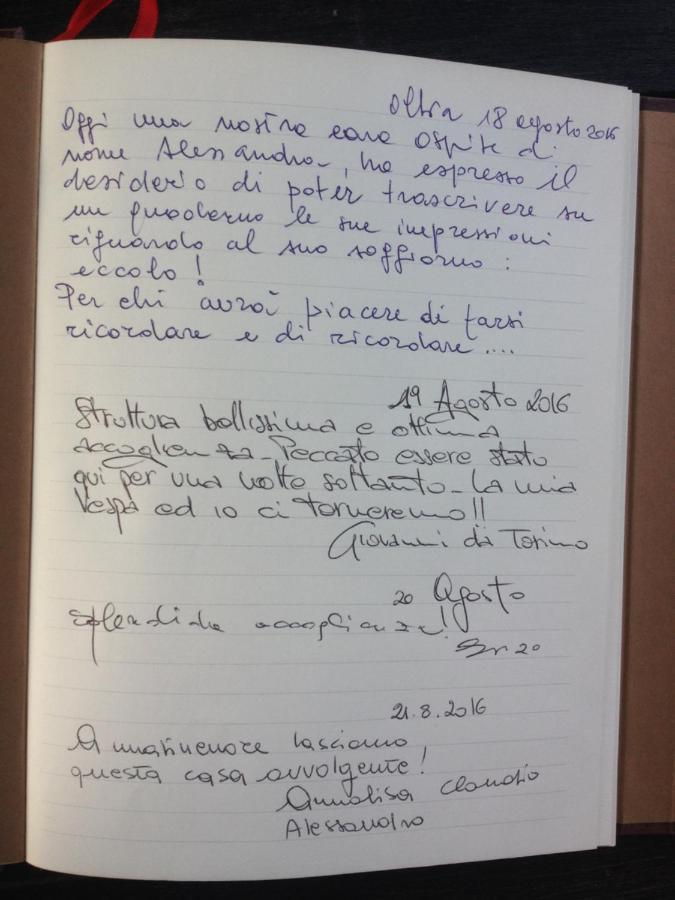 Oltra 18 agosto 2016
Oggi una nostra cara Ospite di
nome Alessandra, ha espresso il
desiderio di poter trascrivere su
un quaderno le sue impressioni
riguardo al suo soggiorno:
eccolo!
Per chi avrà piacere di farsi
ricordare e di ricordare....
19 Agosto 2016
Struttura bellissima e ottima
accoglienza. Peccato essere stato
qui per una volta soltanto. La mia
Vespa ed io ci torneremo!!
Giovanni da Torino
20 Agosto
Splendida accoglienza!
21.8.2016
A malincuore lasciamo
questa casa avvolgente!
Annalisa Claudio
Alessandro